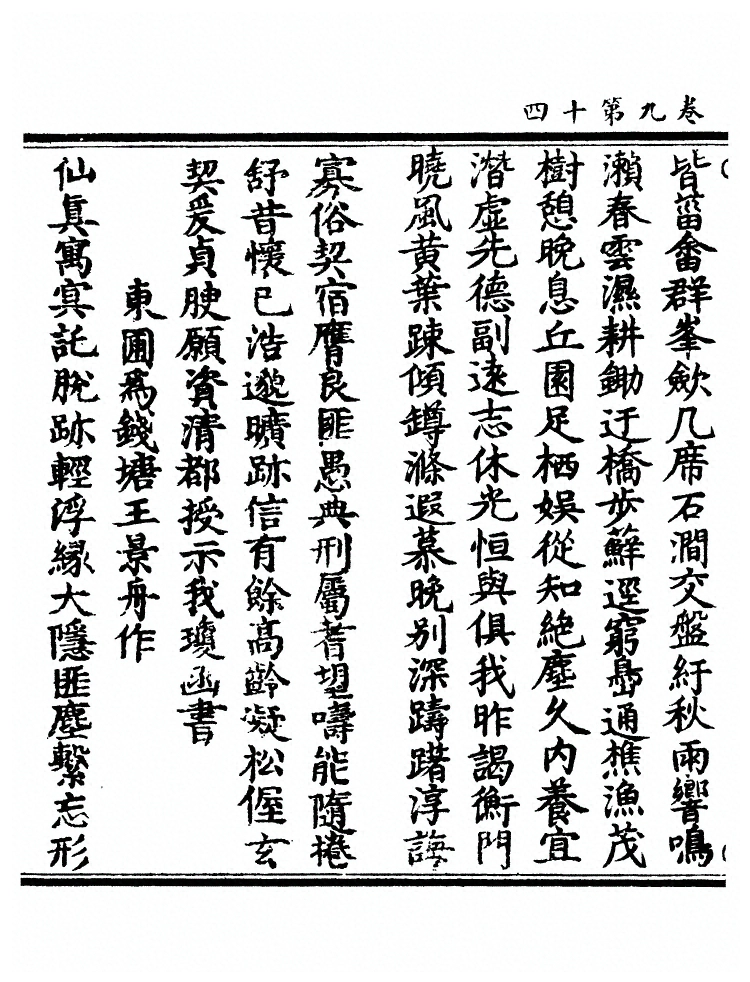 卷九第十四
皆菑畬群峯歛几席石澗交盤紆秋雨響鳴
瀨春雲濕耕鋤迂橋步蘚逕窮島通樵漁茂
樹憩晚息丘園足栖娛從知絶塵久內養宜
潛虛先德副遠志休光恒與俱我昨謁衡門
曉風黃葉踈傾罇滌遐慕晚別深躊躇淳誨
寡俗契宿膺良匪愚典刑屬耆望嚋能隨捲
舒昔懷已浩邈曠跡信有餘高齡凝松偓玄
契爰貞腴願資清都授示我瓊函書
東圃爲錢塘王景舟作
仙眞寓寘託脫跡輕浮緣大隱匪塵繫忘形